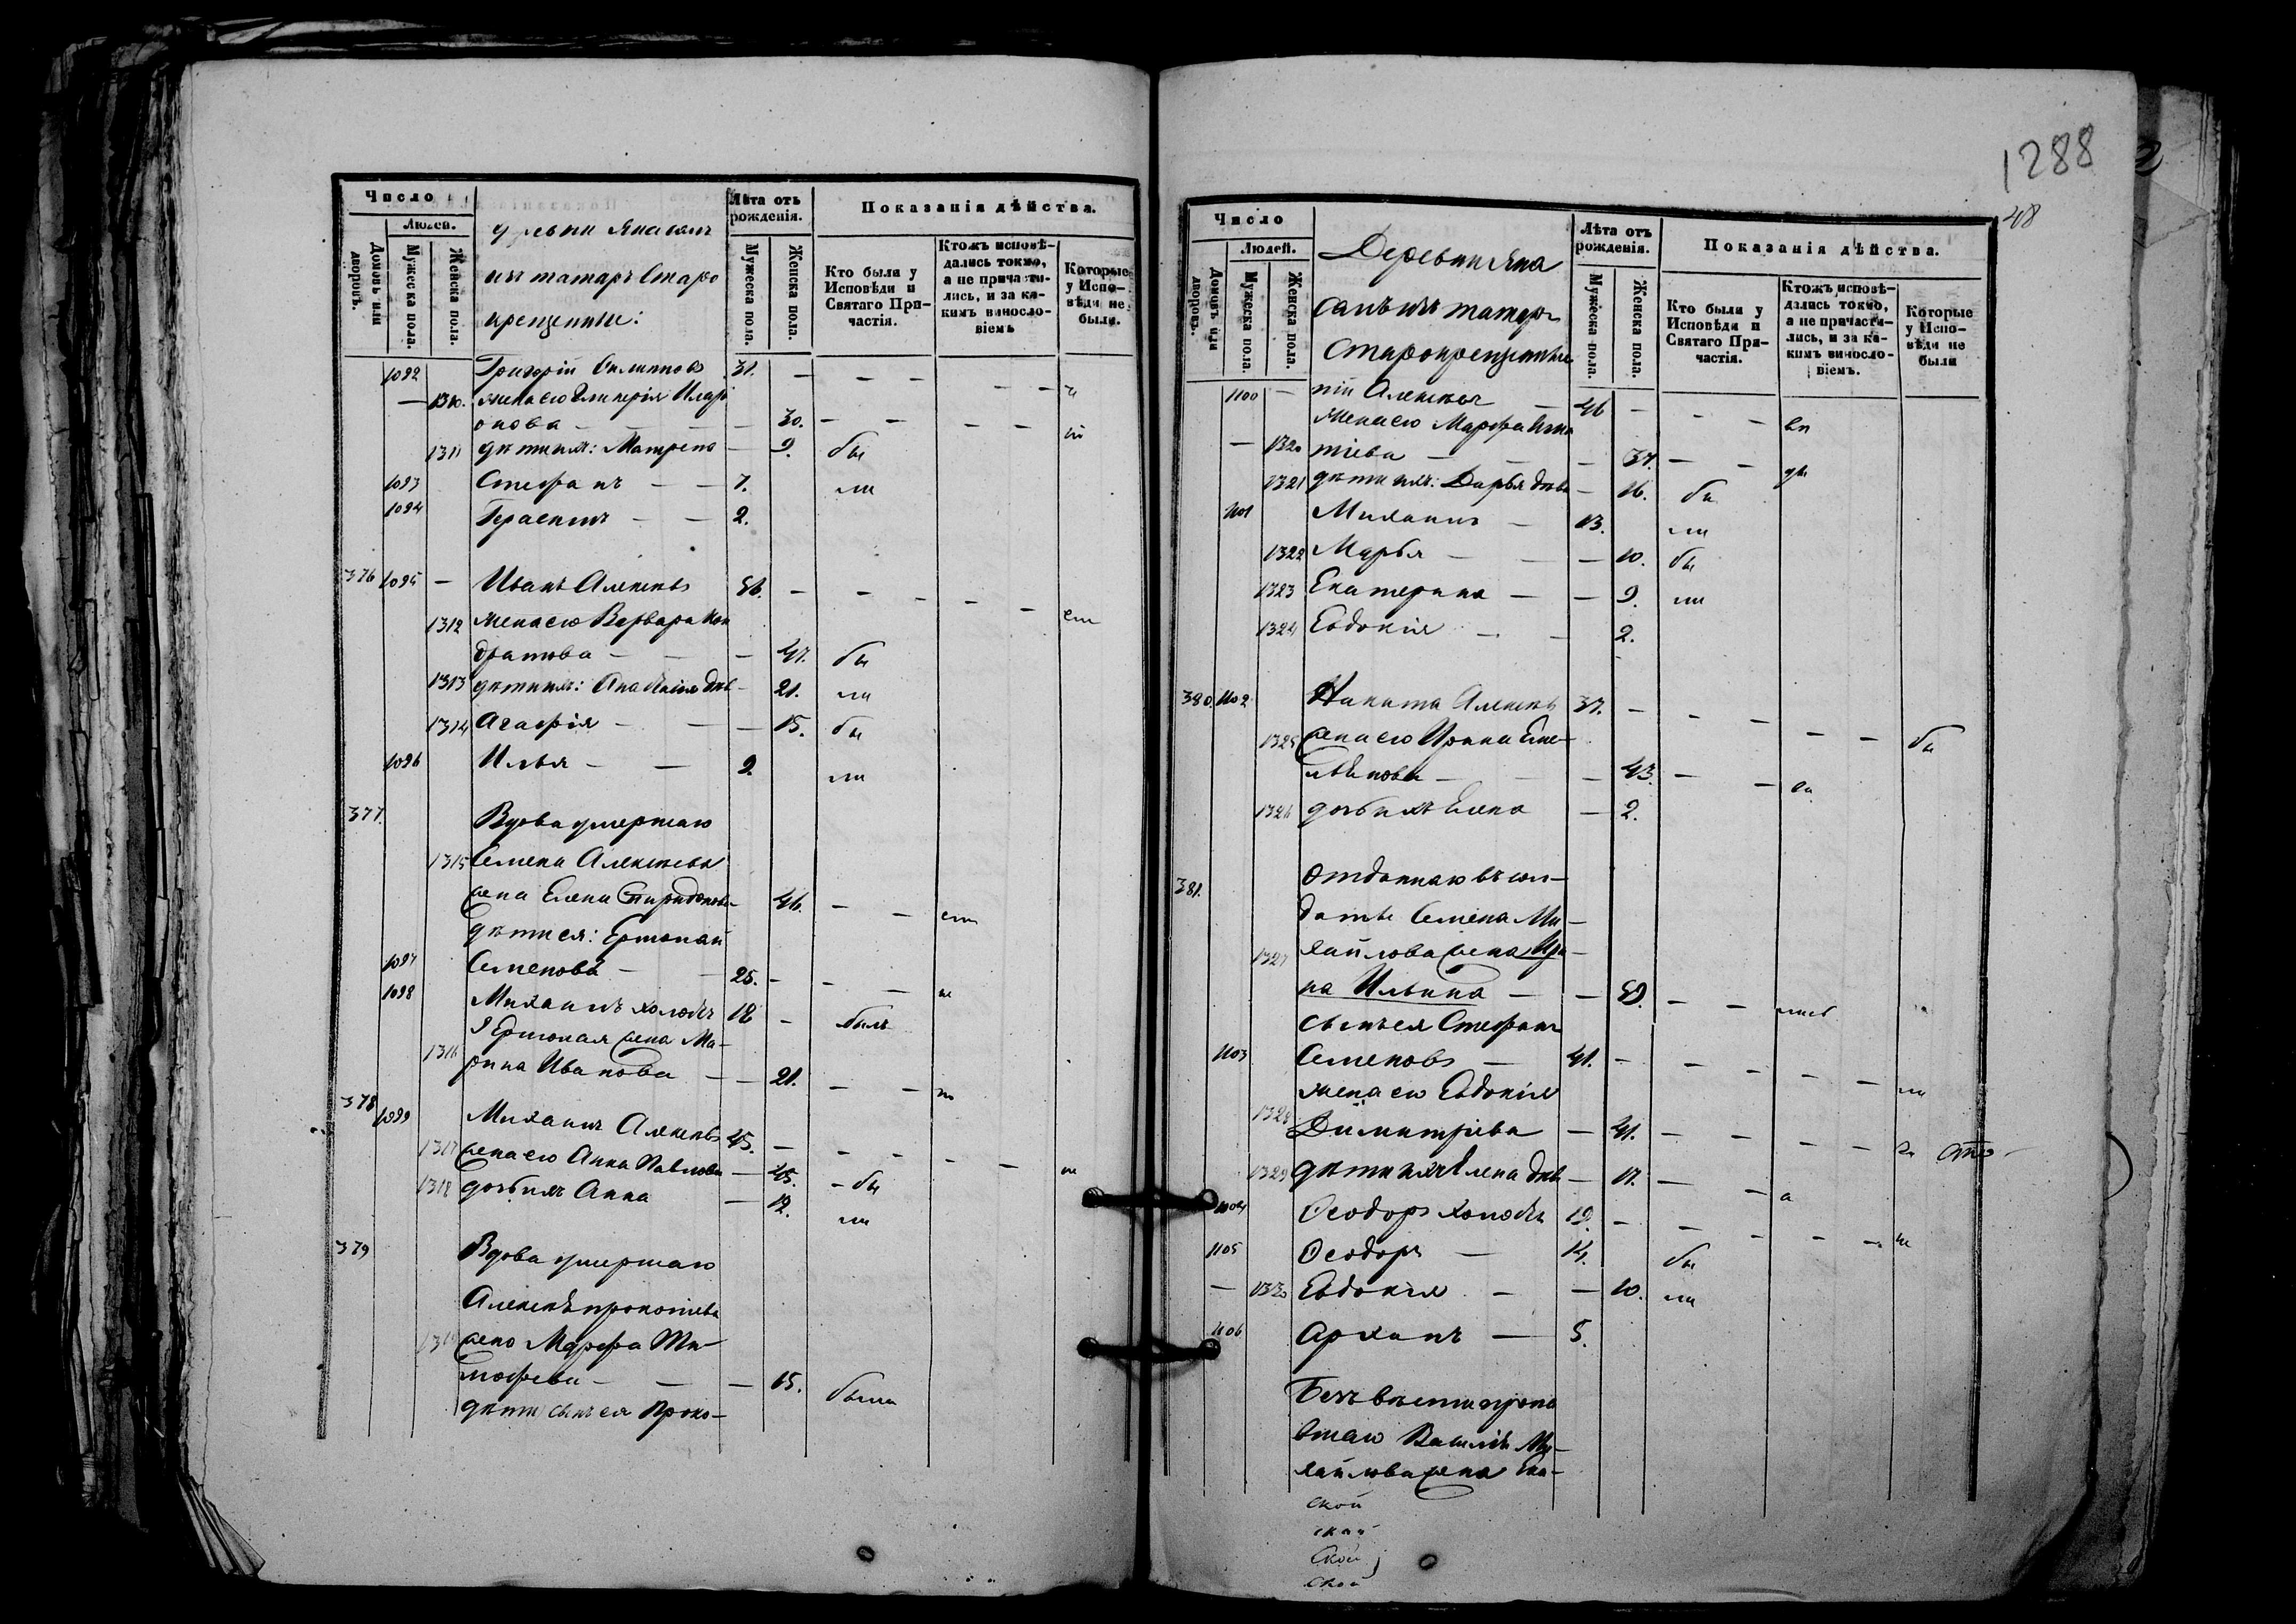 Число
Людей.
Домовъ или дворовъ.
Мужеска пола.
Женска пола.
Лѣта отъ рожденія.
Мужеска пола.
Женска пола.
Показанія дѣйства.
Кто были у Исповѣди и Святаго Причастія.
Ктожъ исповѣдались токмо, а не причастились, и за какимъ винословіемъ
Которые у Исповѣди не были.
изъ татаръ Старо
крещеные:
1092 Григорій 31.
1310. жена его Гликерія Илар
онова — 30.
1311 дѣти ихъ: Матрена — 9. бы
1093 Стефанъ — — 7. ли
1094 Герасимъ — — 2.
376 1095 — Иванъ Алексѣевъ 56.
1312 жена его Варвара Кон
дратьева — — 47. бы
1313 дѣти ихъ: Анастасія дѣв — 21. ли
1314 Агафія — — — 15. бы
1096 Илья — — 9. ли
377. Вдова умершаго
1315 Семена Алексѣева
жена Елена Спиридонова 46.
дѣти ея:
1097 Семеновъ — 25.
1098 Михаилъ холостъ 18 — былъ
1316 жена Ма-
рина Иванова — — 21.
378 1099 Михаилъ Алексѣевъ 45.
1317 жена его Анна Павлова — 45. — бы
1318 дочь ихъ Анна — 12. ли
379 Вдова умершаго
Алексѣя Прокопіева
1319 жена Марфа Ти-
мофеева — — — 65. была
дѣти сынъ ея Проко-
1288
48
Число
Людей.
Домовъ или дворовъ.
Мужеска пола.
Женска пола.
Лѣта отъ рожденія.
Мужеска пола.
Женска пола.
Показанія дѣйства.
Кто были у Исповѣди и Святаго Причастія.
Ктожъ исповѣдались токмо, а не причастились, и за какимъ винословіемъ.
Которые у Исповѣди не были
Деревни Яна
салъ изъ татаръ
Старокрещеные
1100 — пій Алексѣевъ — 46
жена его Марфа Игна
— 1320 тіева — — — 37.
1321 дѣти ихъ: Дарья дѣв — 16. бы
1101 Михаилъ — 13. ли
1322 Марья — — — 10. бы
1323 Екатерина — — 9. ли
1324 Евдокія — — 2.
380. 1102 Никита Алексѣевъ 37.
1325 жена его Ирина Еме-
льянова — — — 43.
1326 дочь ихъ Елена — 2.
381. Отданнаго въ сол-
даты Семена Ми-
1327 хайлова жена Ири-
на Ильина — —
сынъ ея Стефанъ
1103 Семеновъ — 41.
жена его Евдокія
1328 Димитріева — 41.
1329 дѣти ихъ Елена дѣв — 17.
1104 Ѳеодоръ холостъ 19.
1105 Ѳеодоръ — 14. бы
— 1330 Евдокія — — 10. ли
1106 — 5.
Безъ вѣсти пропа
вшаго Василія Ми-
хайлова жена
ской
ской
ской
ской